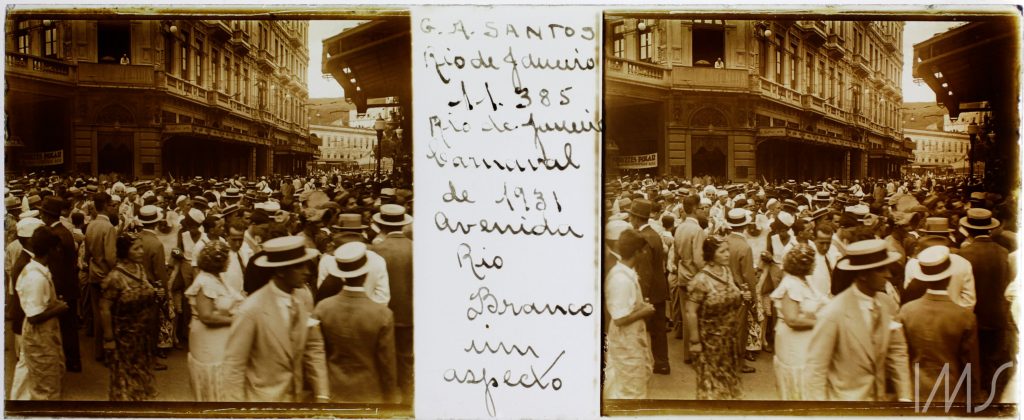 G. A. SANTOS
Rio de Janeiro
11.385
Rio de Janeiro
Carnaval
de 1931
Avenida
Rio
Branco
um
aspecto
IMS